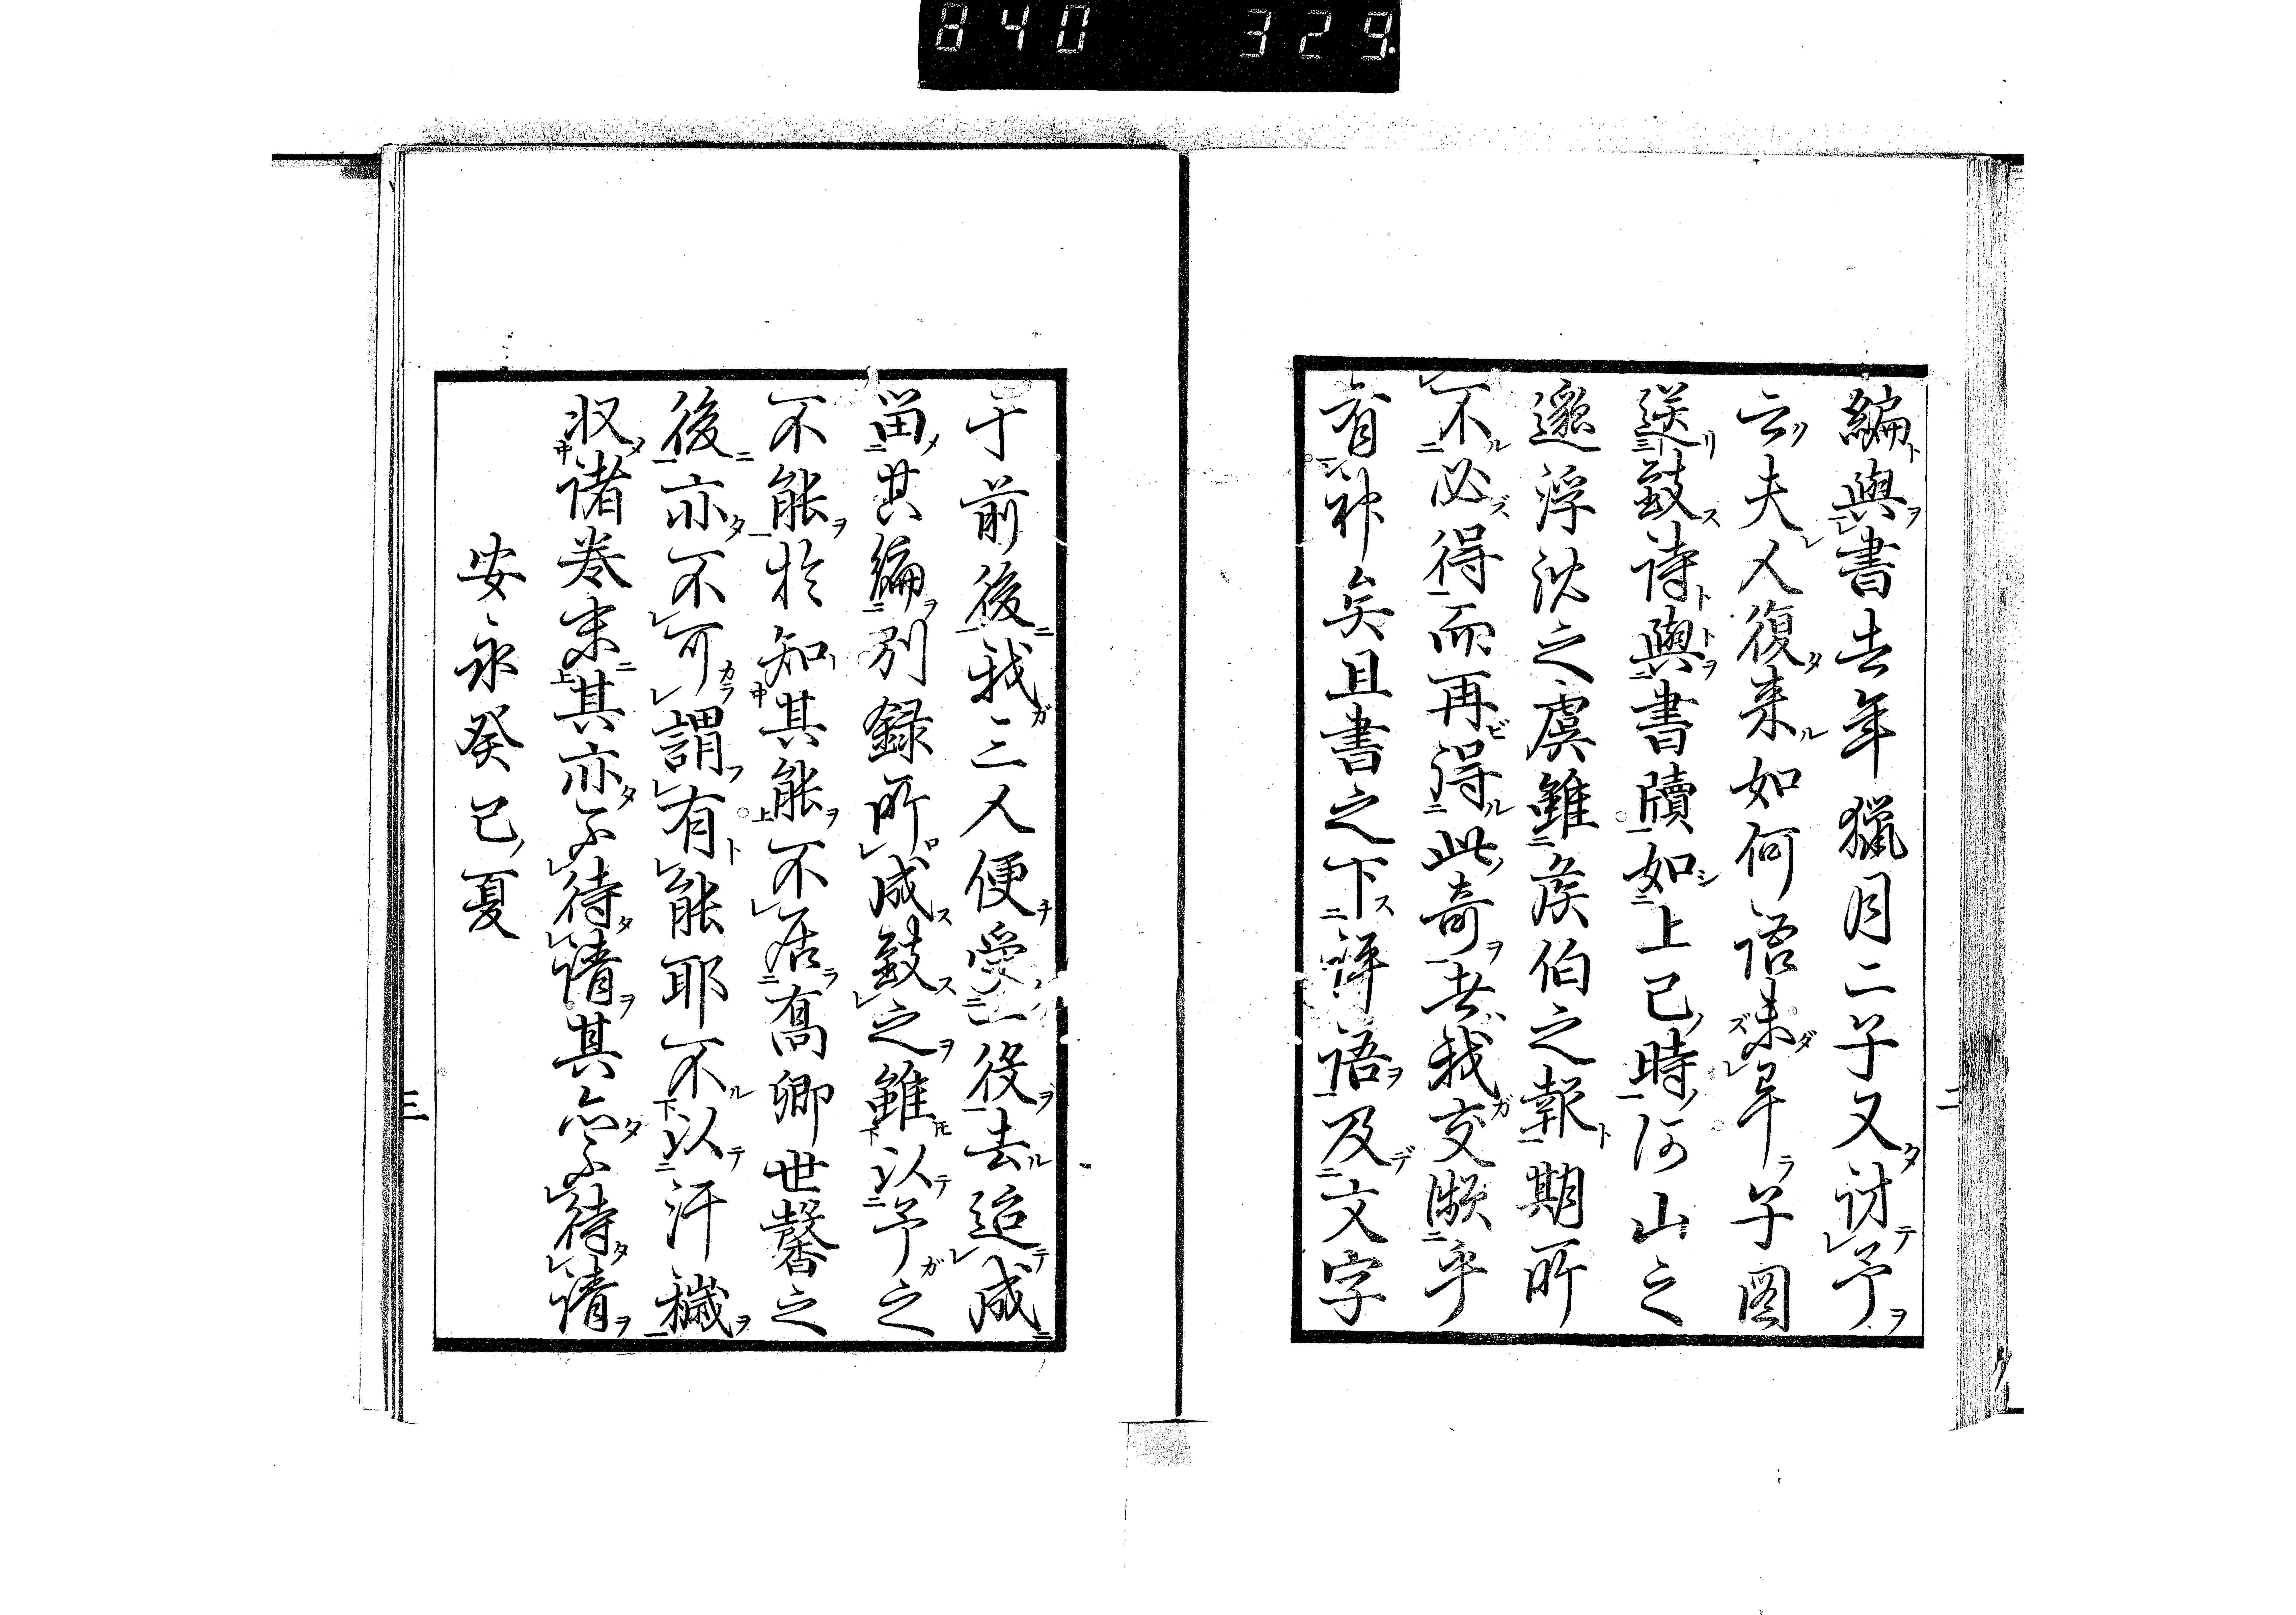 840 329
編與書去年獵月二子又討予
云夫人復来如何語未畢子図
送致詩與書牘如上己時河山之
邈浮沈之虞雖侯伯之報期所
不必得而再得此奇共我交際乎
有神矣且書之下評語及文字
二
于前後我二人便受二役去追感
留其編別録所感致之雖以予之
不能於知其能不居高卿世馨之
後亦不可謂有能耶不以汗穢
収諸巻末其亦不待請其亦不待請
安永癸巳夏
三